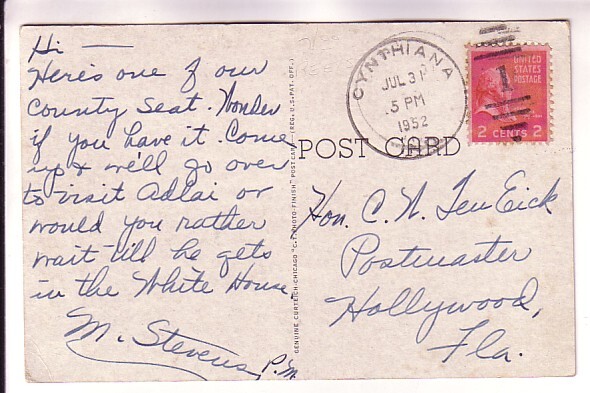 Hi —
Here's one of our
County Seat. Wonder
if you have it. Come
up & we'll go over
to visit Adlai or
would you rather
wait till he gets
in the White House.
M. Stevens, P.M.
GENUINE CURTEICH-CHICAGO "C.T. PHOTO-FINISH" POST CARD (REG. U.S. PAT. OFF.)
POST CARD
CYNTHIANA
JUL 31
5 PM
1952
UNITED
STATES
POSTAGE
1
2 CENTS 2
Hon. C. N. TenEick
Postmaster
Hollywood,
Fla.